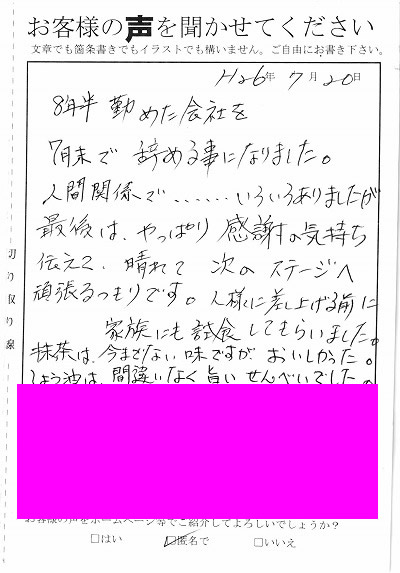 お客様の声を聞かせてください
文章でも箇条書きでもイラストでも構いません。ご自由にお書き下さい。
H26年 7月 20日
8年半 勤めた会社を
7月末で 辞める事になりました。
人間関係で……いろいろありましたが
最後は、やっぱり 感謝の気持ち
伝えて、晴れて 次の ステージへ
頑張るつもりです。人様に差し上げる前に
家族にも試食してもらいました。
抹茶は、今までない味ですが おいしかった。
しょう油は、間違いなく旨いせんべいでした。
お客様の声をホームページ等でご紹介してよろしいでしょうか？
□はい ☑匿名で □いいえ
切り取り線